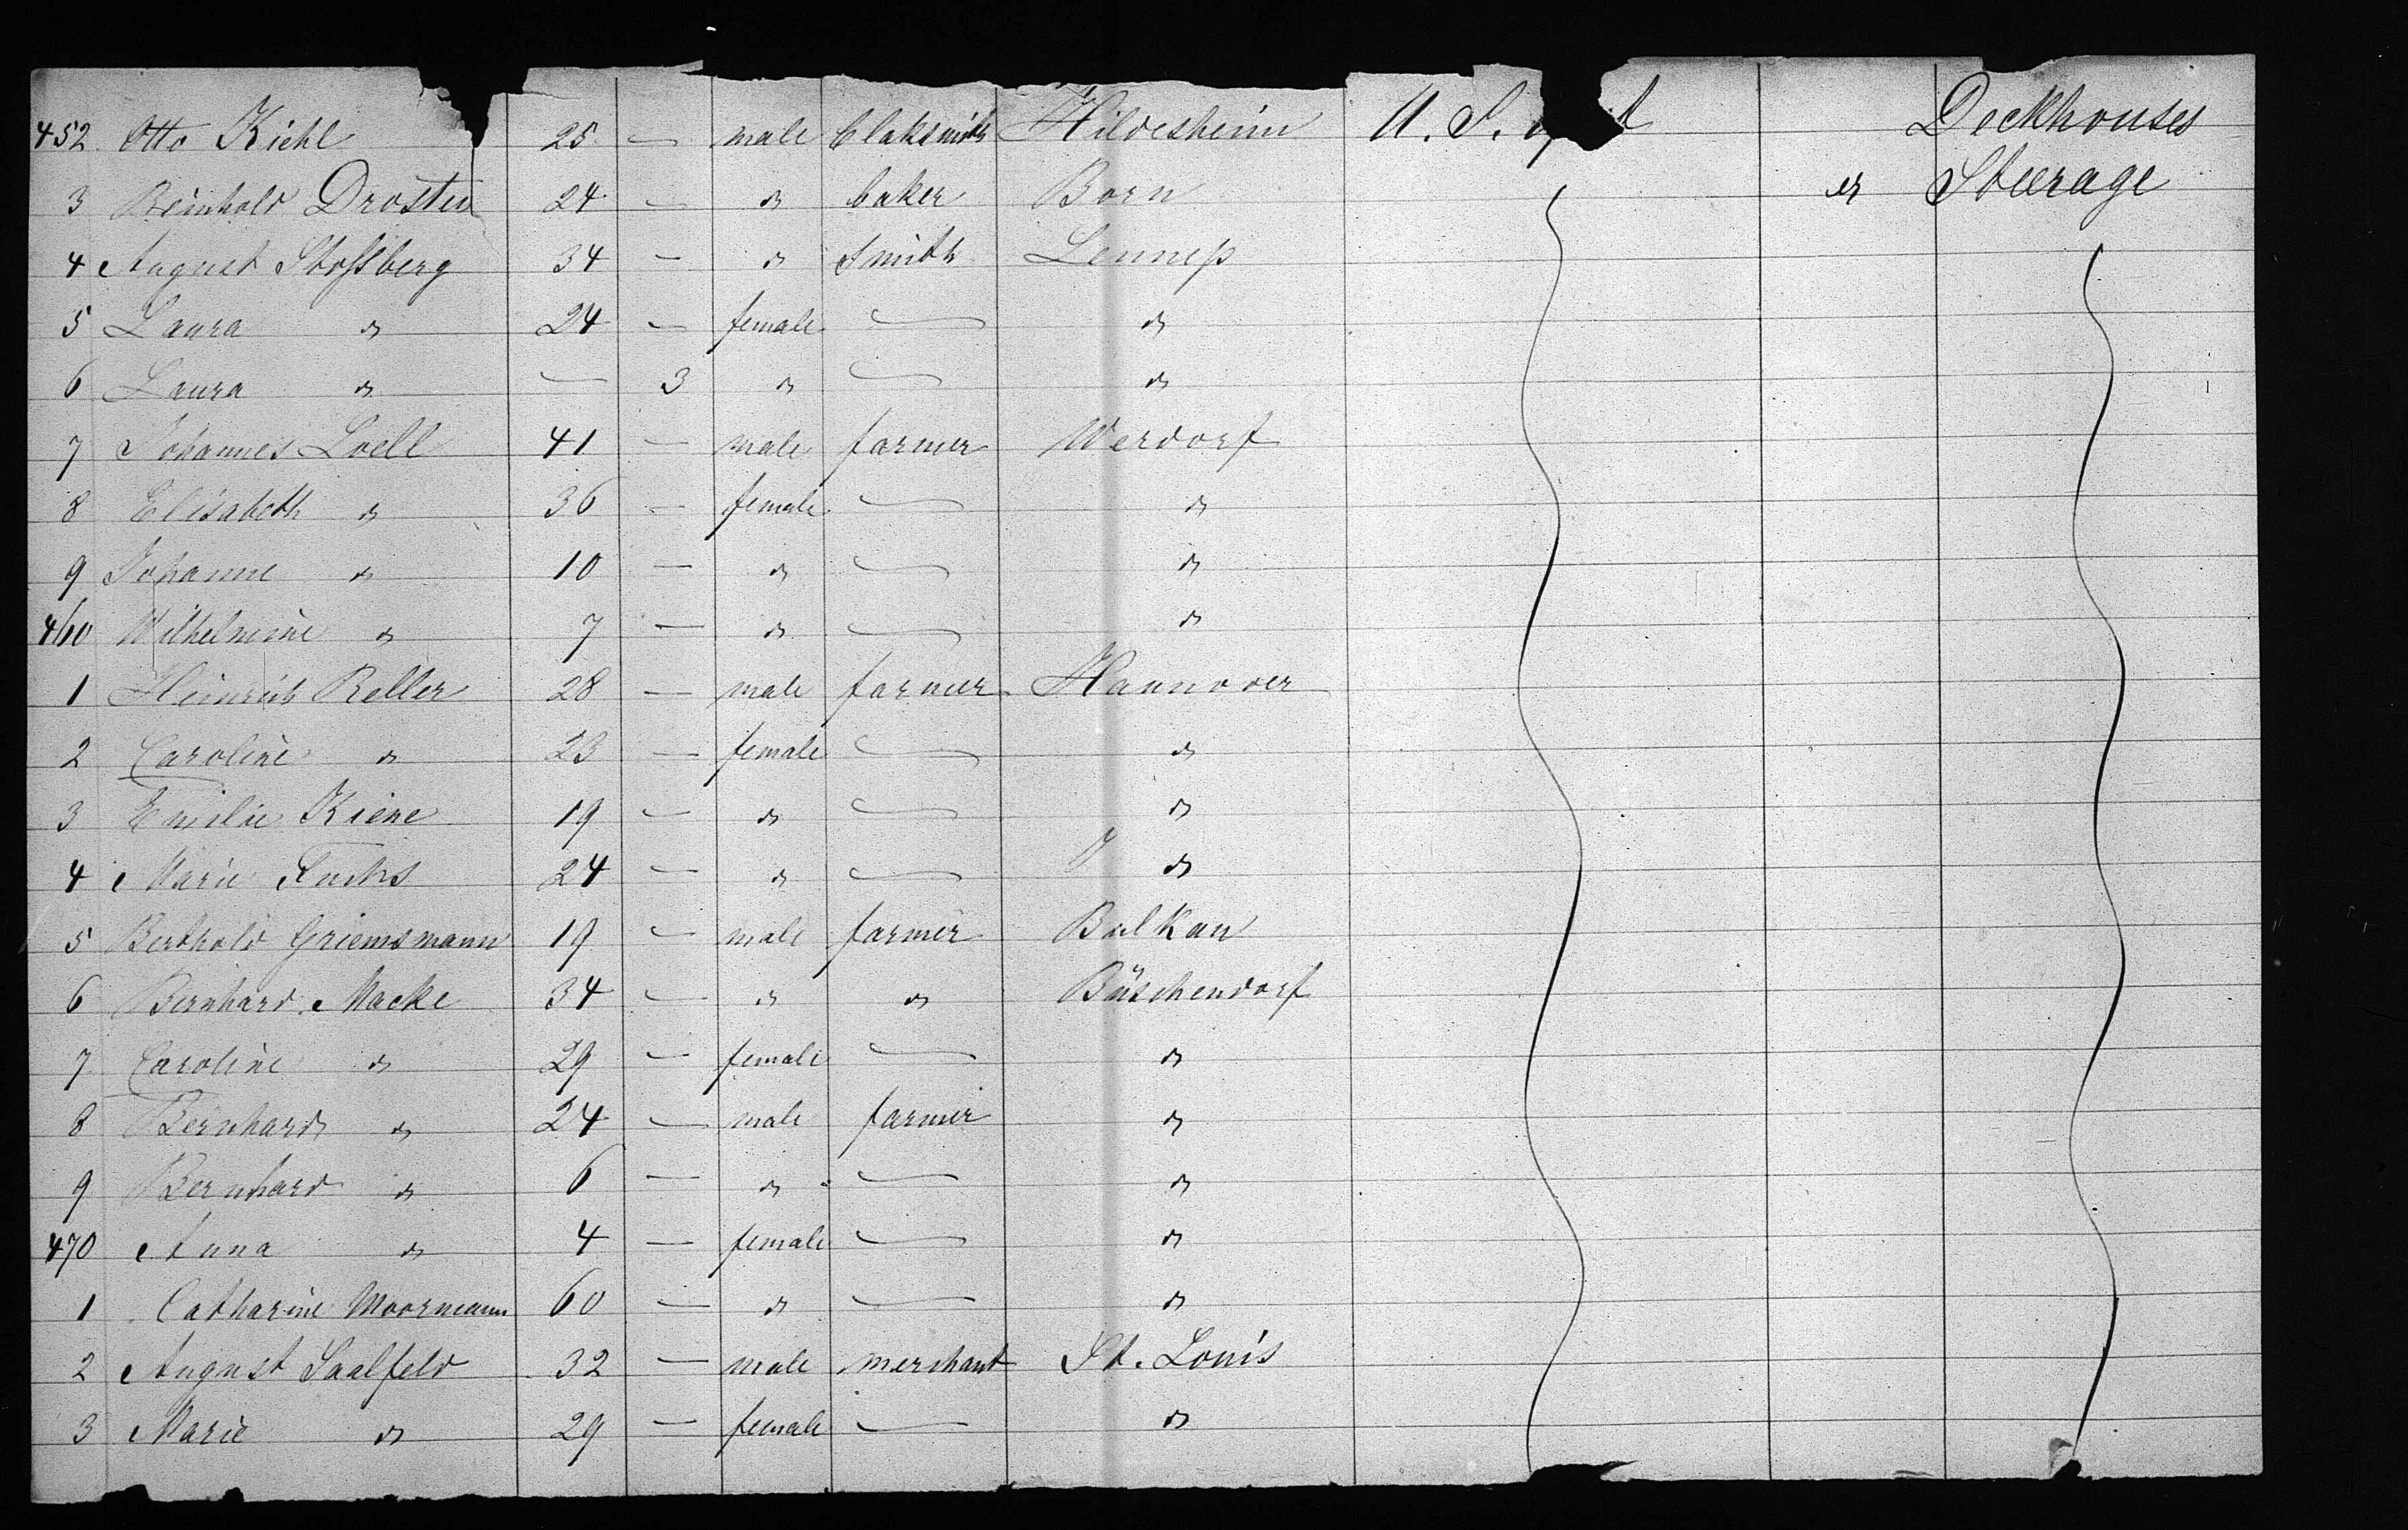 452 Otto Kiehl 25 — male blaksmith Hildesheim U. S. of Deckhouses
3 Reinhold Drosten 24 — " baker Born er Steerage
4 August Stossberg 34 — " Smith Lennep
5 Laura " 24 — female — "
6 Laura " — 3 " — "
7 Johannes Loell 41 — male farmer Werdorf
8 Elisabeth " 36 — female — "
9 Johanne " 10 — " — "
460 Wilhelmine " 7 — " — "
1 Heinrich Reller 28 — male farmer Hannover
2 Caroline " 23 — female — "
3 Emilie Kiene 19 — " — "
4 Marie Fuchs 24 — " — "
5 Berthold Griemsmann 19 — male farmer Balkan
6 Bernhard Macke 34 — " " Büschendorf
7 Caroline " 29 — female — "
8 Bernhard " 24 — male farmer "
9 Bernhard " 6 — " — "
470 Anna " 4 — female — "
1 Catharine Moormann 60 — " — "
2 August Saalfeld 32 — male merchant St. Louis
3 Marie " 29 — female — "